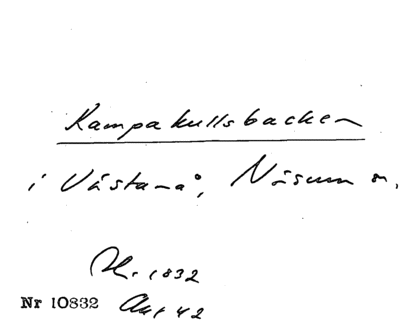 Kampakullsbacken
i Västanå, Näsum sn.
1832
Nr 10832 Akt 42